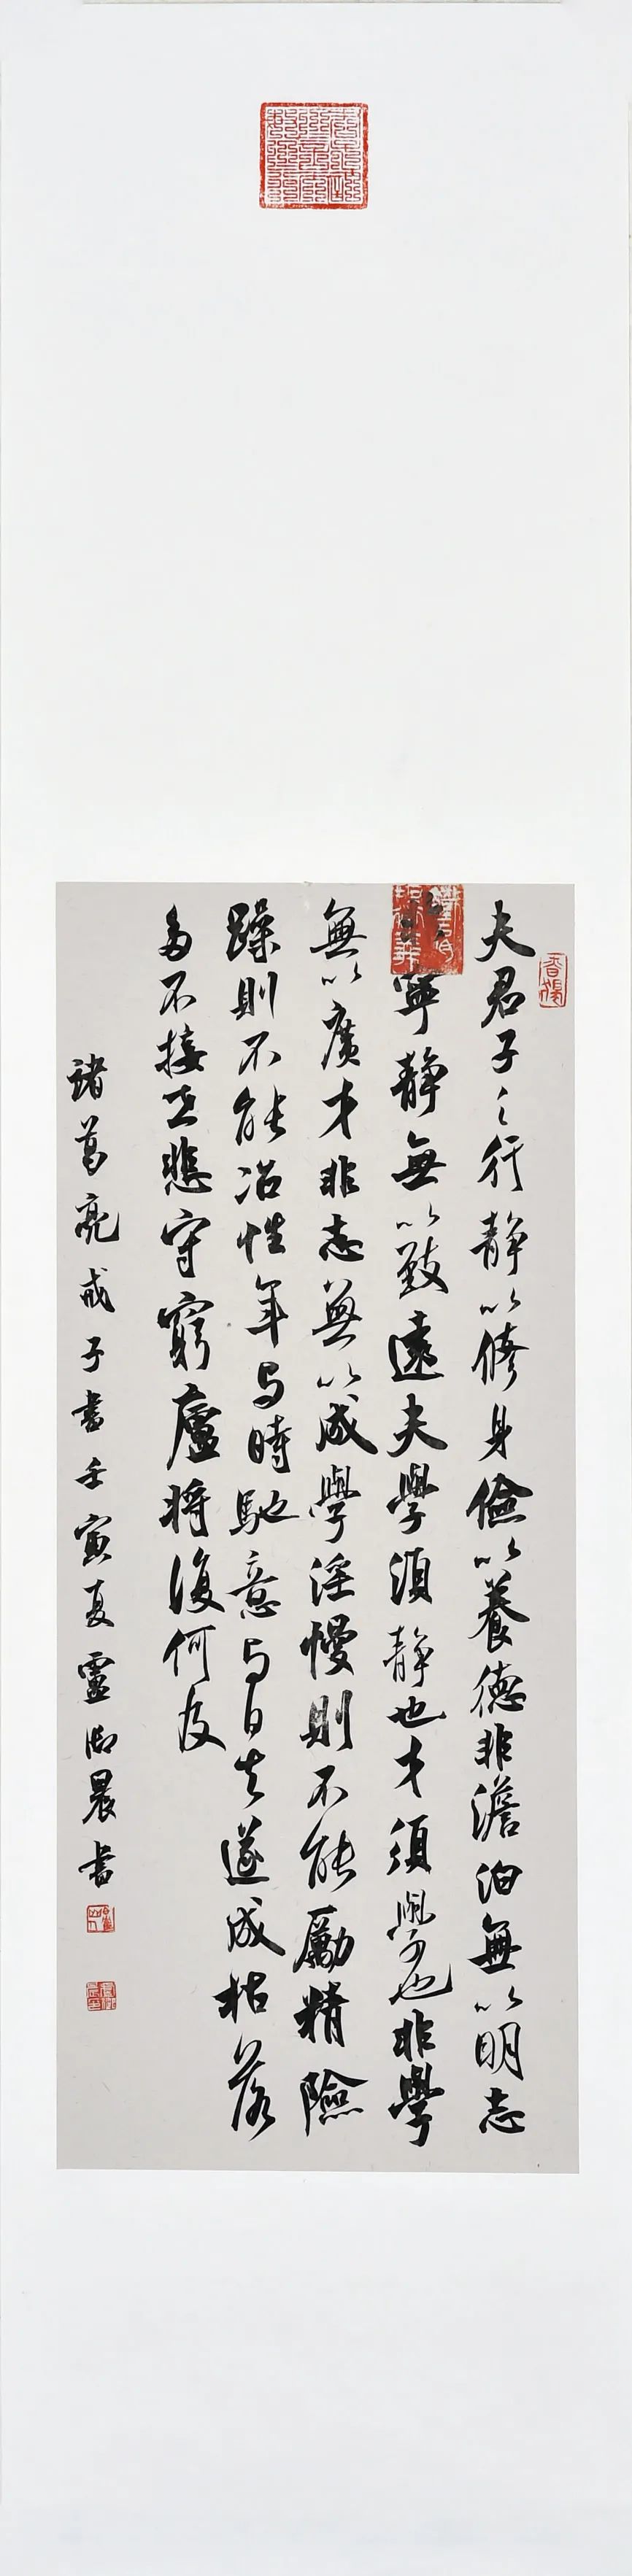 夫君子之行静以修身儉以養德非澹泊無以明志
寧静無以致遠夫學須静也才須學也非學
無以廣才非志無以成學淫慢則不能勵精險
躁則不能冶性年与時馳意与日去遂成枯落
多不接世悲守窮廬將復何及
諸葛亮戒子書壬寅夏靈湖晨書